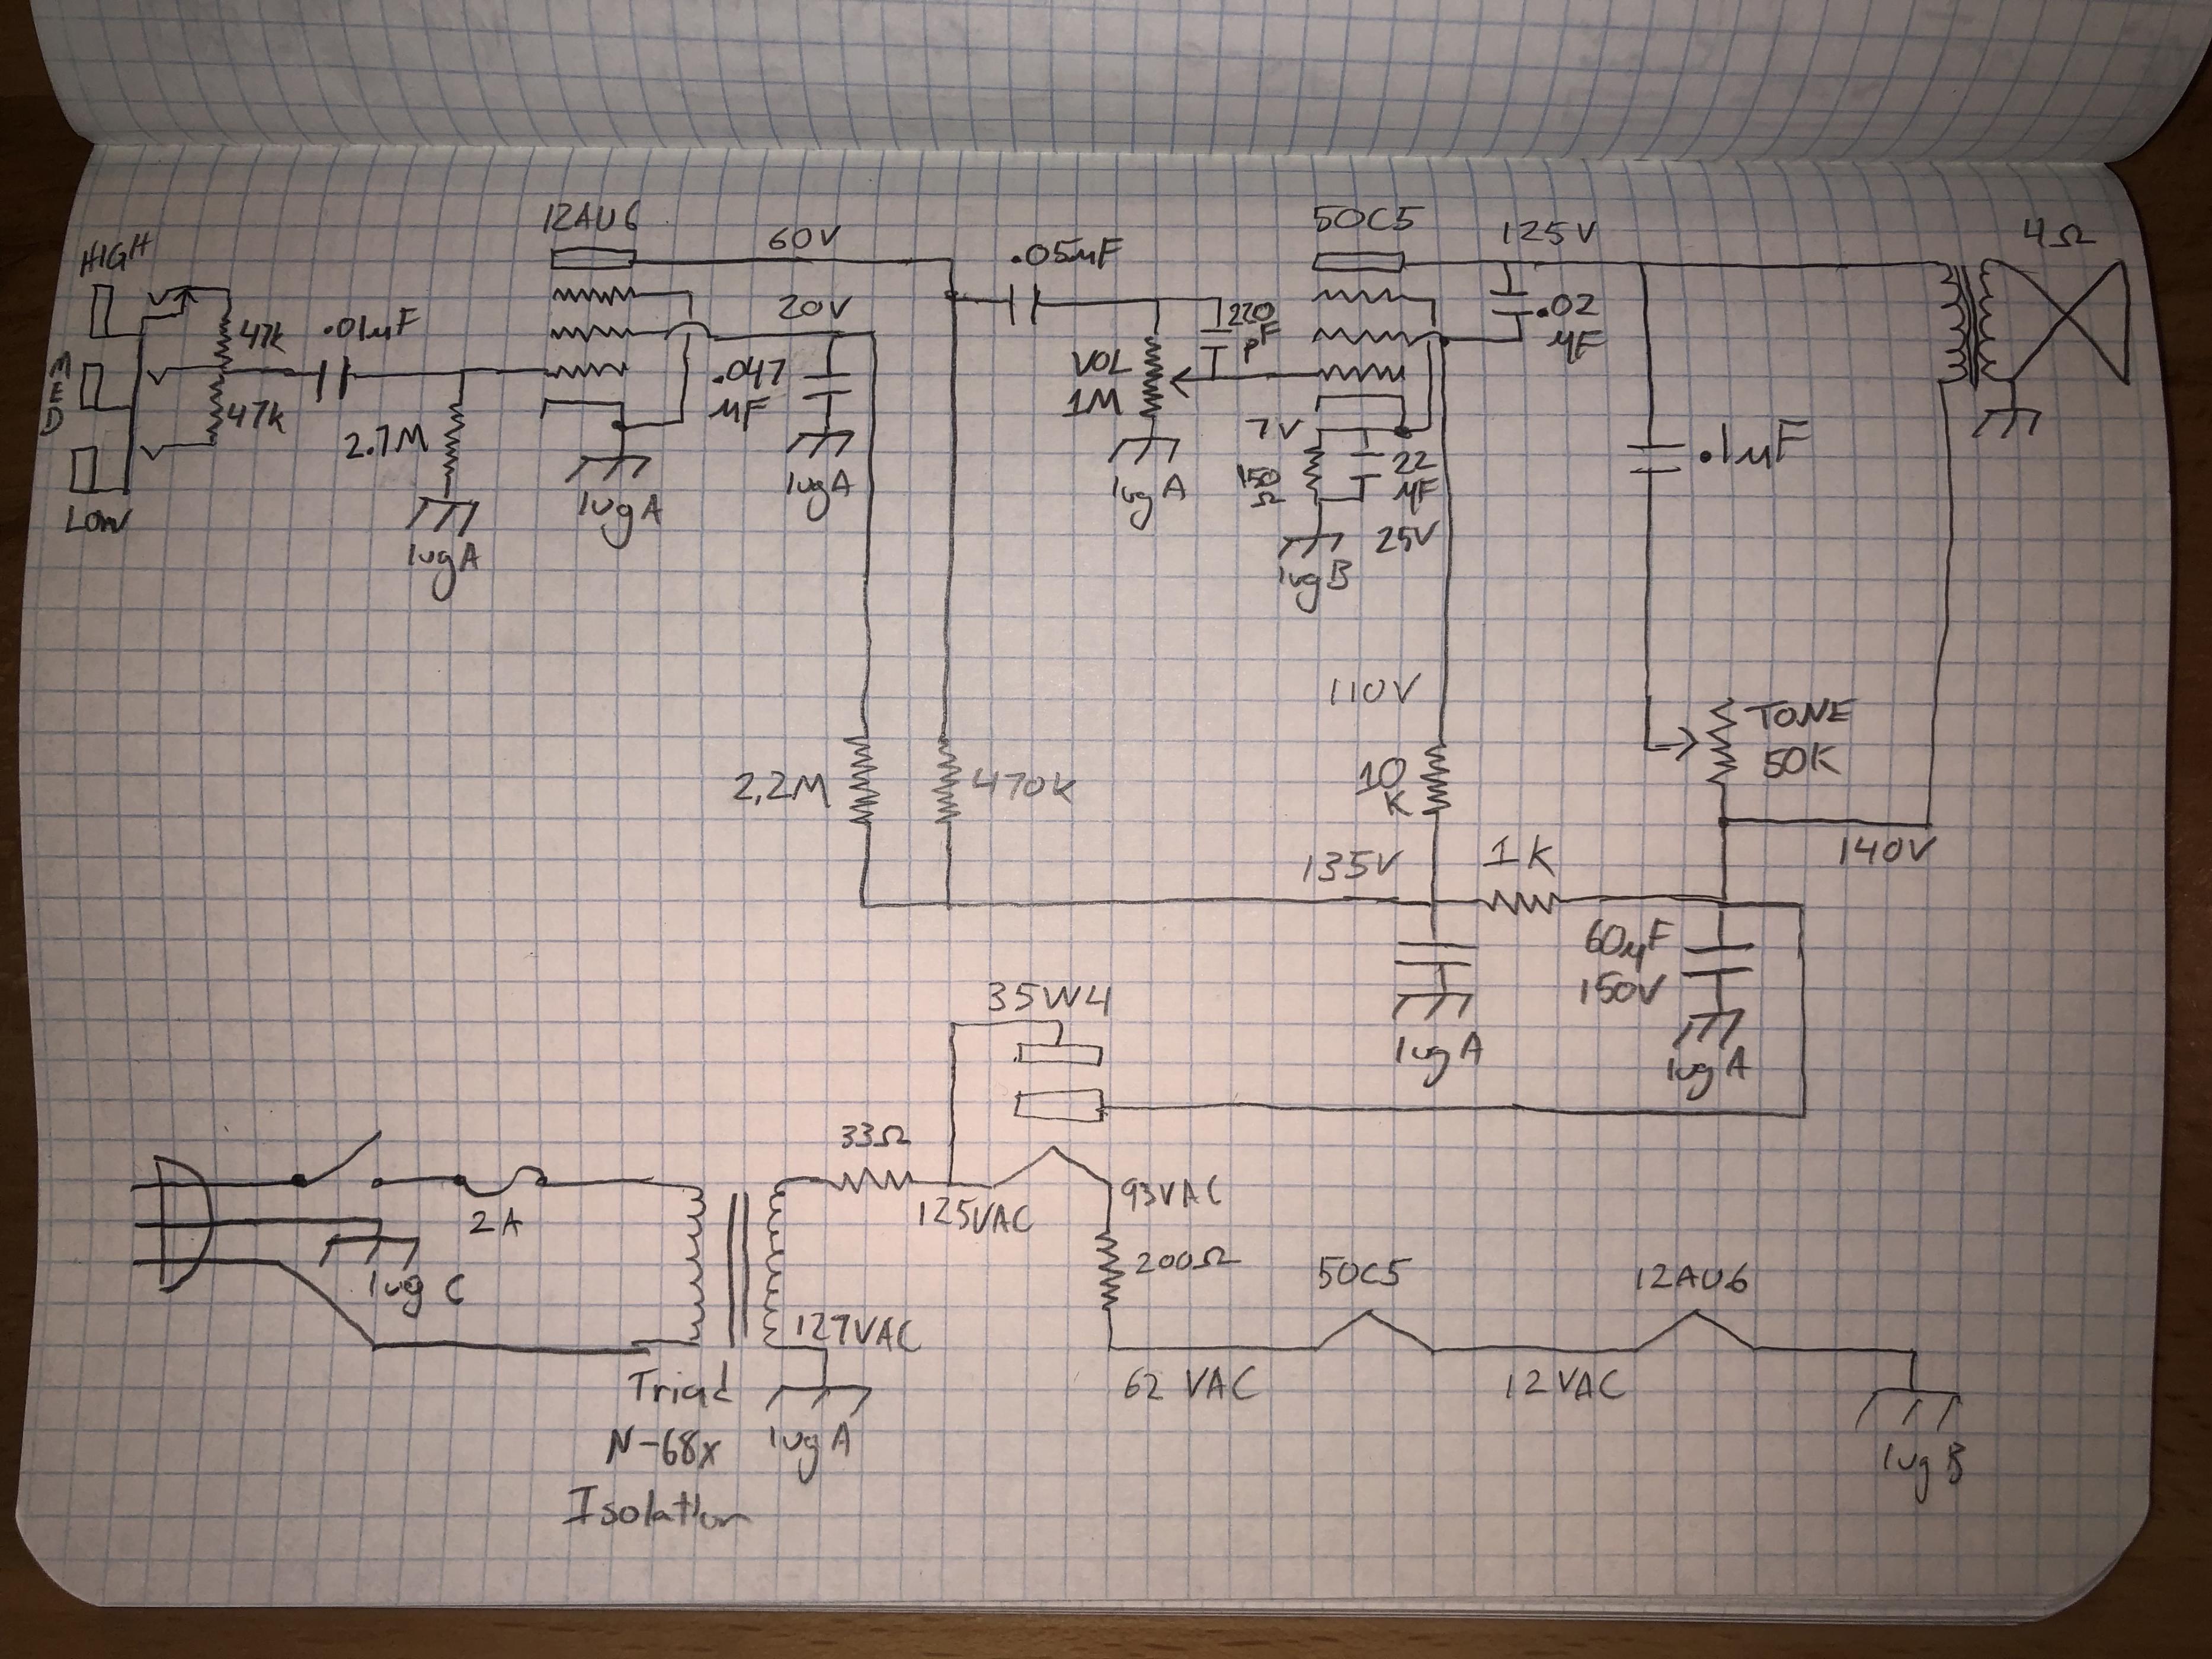 12AU6
60V
.05µF
50C5
125V
4Ω
HIGH
47K
.01µF
20V
220
PF
.02
µF
MED
47K
2.7M
.047
µF
VOL
1M
7V
150
Ω
22
µF
25V
.1µF
LOW
lug A
lug A
lug A
lug A
lug B
110V
TONE
50K
2.2M
470K
10
K
135V
1K
140V
60µF
150V
35W4
lug A
lug A
33Ω
125VAC
93VAC
2A
200Ω
50C5
12AU6
lug C
127VAC
62 VAC
12VAC
Triad
N-68x
Isolation
lug A
lug B